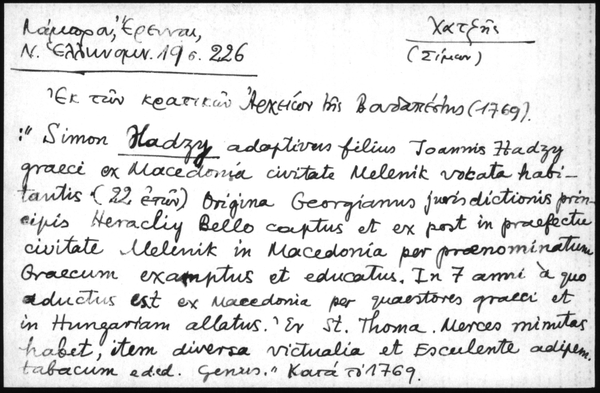 Λάμπρου, Ἔρευναι,
Ν. Ἑλληνομν. 19 σ. 226
Χατζῆς
(Σίμων)
Ἐκ τῶν κρατικῶν Ἀρχείων τῆς Βουδαπέστης (1769).
:" Simon Hadzy adaptivus filius Joannis Hadzy
graeci ex Macedonia civitate Melenik vokata habi-
tantis (22 ἐτῶν) Origina Georgianus jurisdictionis prin-
cipis Heracliy Bello captus et ex post in praefectu
civitate Melenik in Macedonia per praenominatum
Graecum examptus et educatus. In 7 anni a quo
aductus est ex Macedonia per quaestores graeci et
in Hungariam allatus. Ex St. Thoma. Merces minutas
habet, item diversa victualia et Esculente adipem
tabacum eded. Genus." Κατά τό 1769.